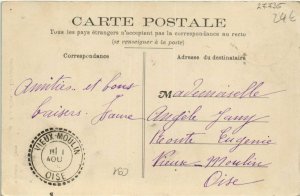 27735
246
CARTE POSTALE
Tous les pays étrangers n'acceptent pas la correspondance au recto
(se renseigner à la poste)
Correspondance
Adresse du destinataire
Amitiés et bons
baisers. Jane
Mademoiselle
Angèle Jany
Route Eugénie
Vieux-Moulin
Oise
VIEUX-MOULIN
OISE